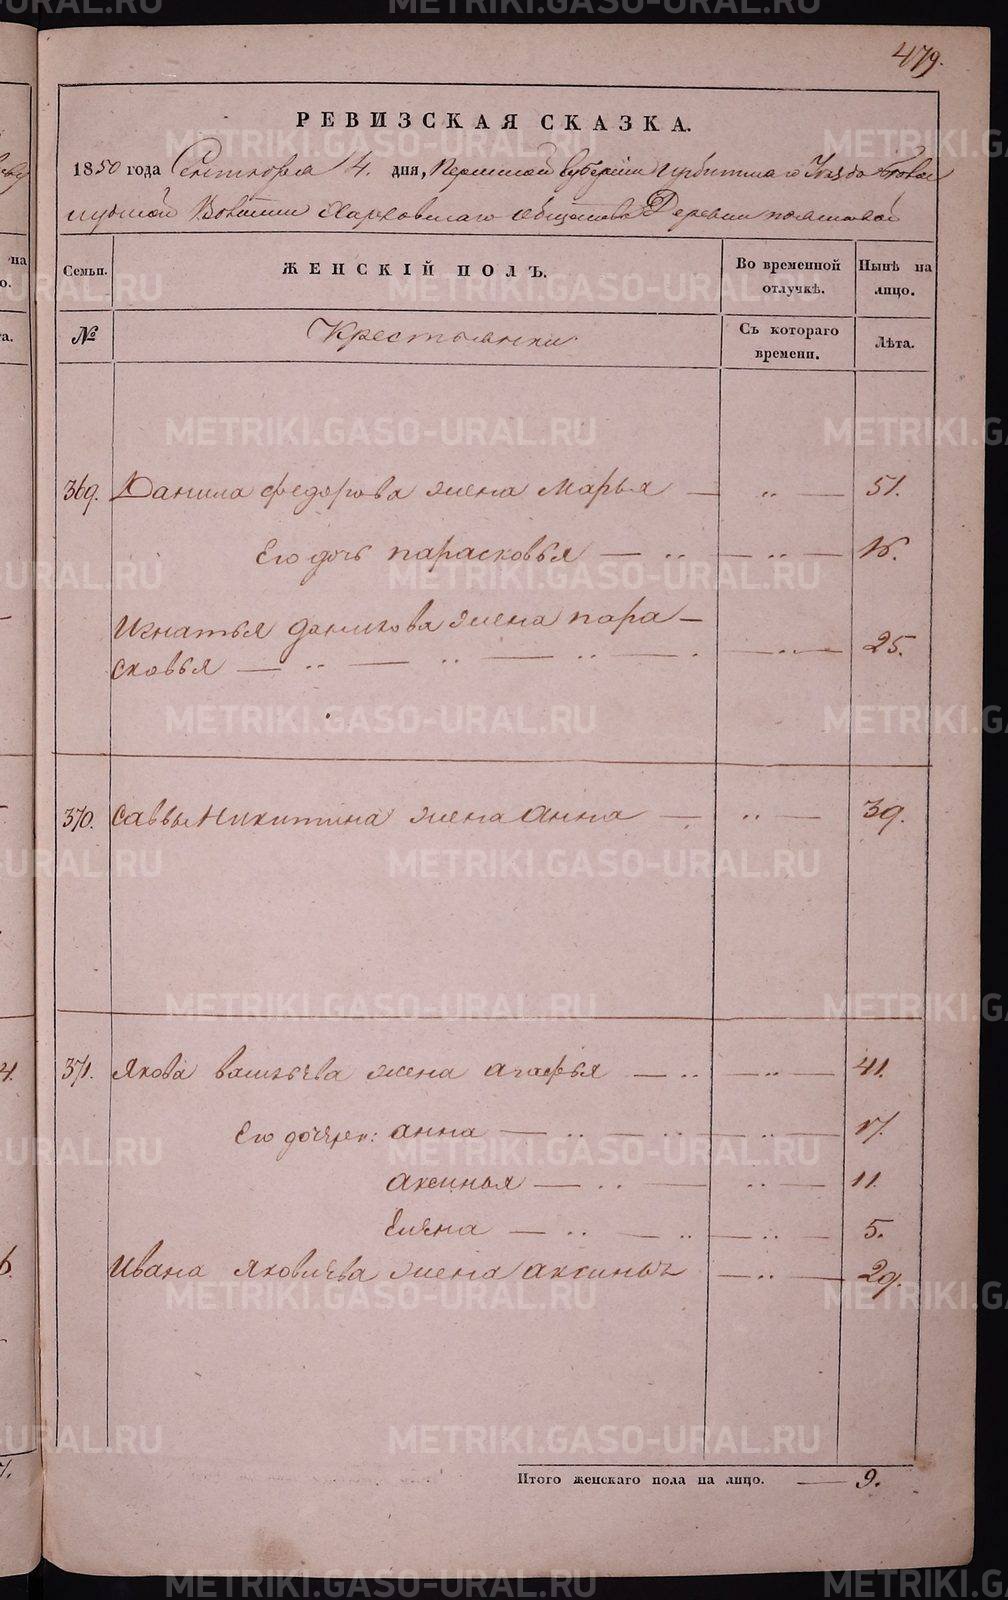 479.
РЕВИЗСКАЯ СКАЗКА.
1850 года Сентября 14. дня, Пермской Губернии Ирбитскаго Уезда
Волости Харловскаго общества Деревни
Семьи. ЖЕНСКІЙ ПОЛЪ. Во временной отлучкѣ. Нынѣ на лицо.
№ Крестьянки Съ котораго времени. Лѣта.
369. Данила федорова жена Марья — „ — 51.
Его дочь парасковья — „ — „ — 16.
Игнатья данилова жена пара-
сковья — „ — „ — „ — „ — 25.
370. Саввы Никитина жена анна — „ — 39.
371. Якова васильева жена агафья — „ — „ — 41.
Его дочери: анна — „ — „ — „ — 17.
аксинья — „ — „ — 11.
Елена — „ — „ — „ — 5.
Ивана Яковлева жена аксинья — „ — 29.
Итого женскаго пола на лицо. — 9.
METRIKI.GASO-URAL.RU